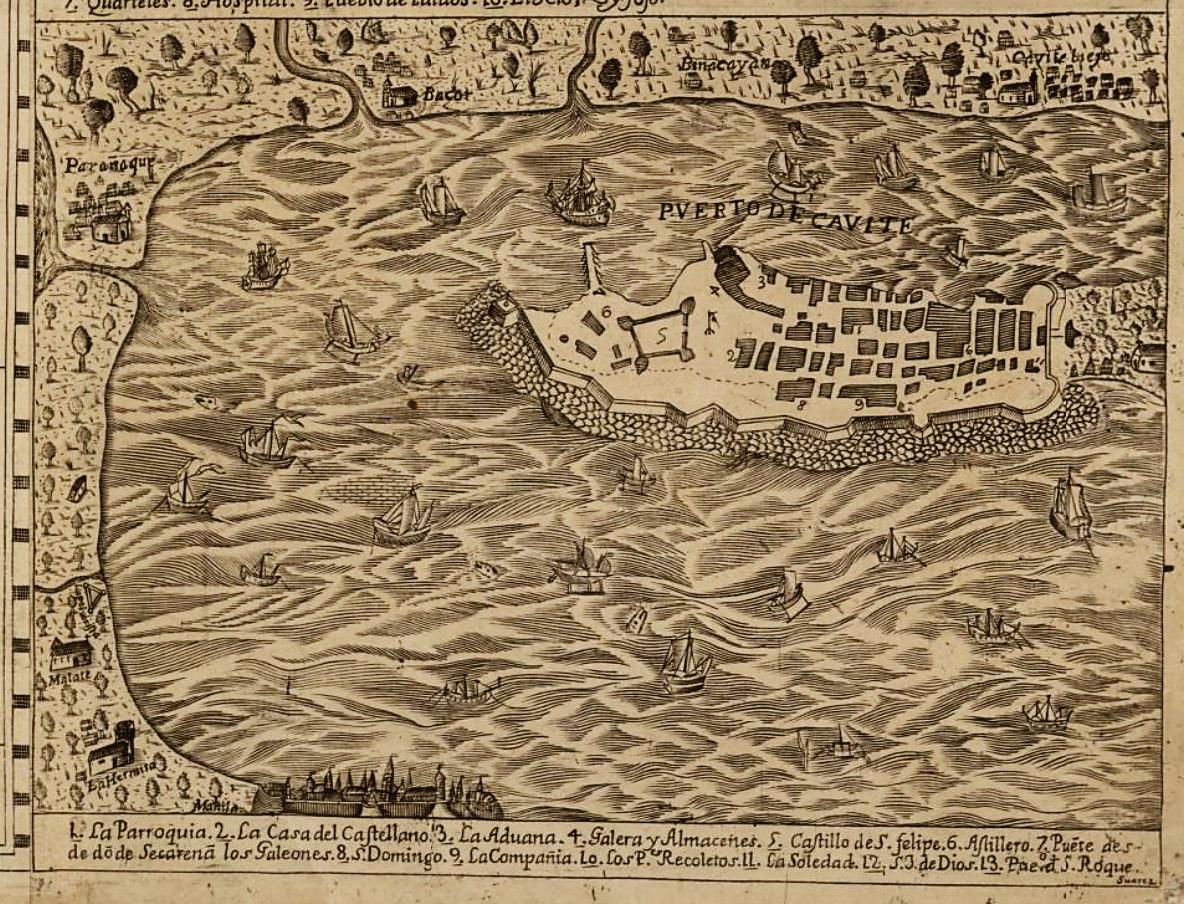 7. Quarteles. 8. Hospital. 9.
Binacayan
Cavite biejo
Bacor
Parañaque
PVERTO DE CAVITE
3
4
6
5
1
2
8
9
Malate
La Hermita
Manila
1. La Parroquia. 2. La Casa del Castellano. 3. La Aduana. 4. Galera y Almacenes. 5. Castillo de S. felipe. 6. Astillero. 7. Puẽte des-
de dõde Secarenã los Galeones. 8. S. Domingo. 9. La Compañia. 10. Los P.ˢ Recoletos. 11. La Soledad. 12. S. J. de Dios. 13. S. Roque.
Suarez